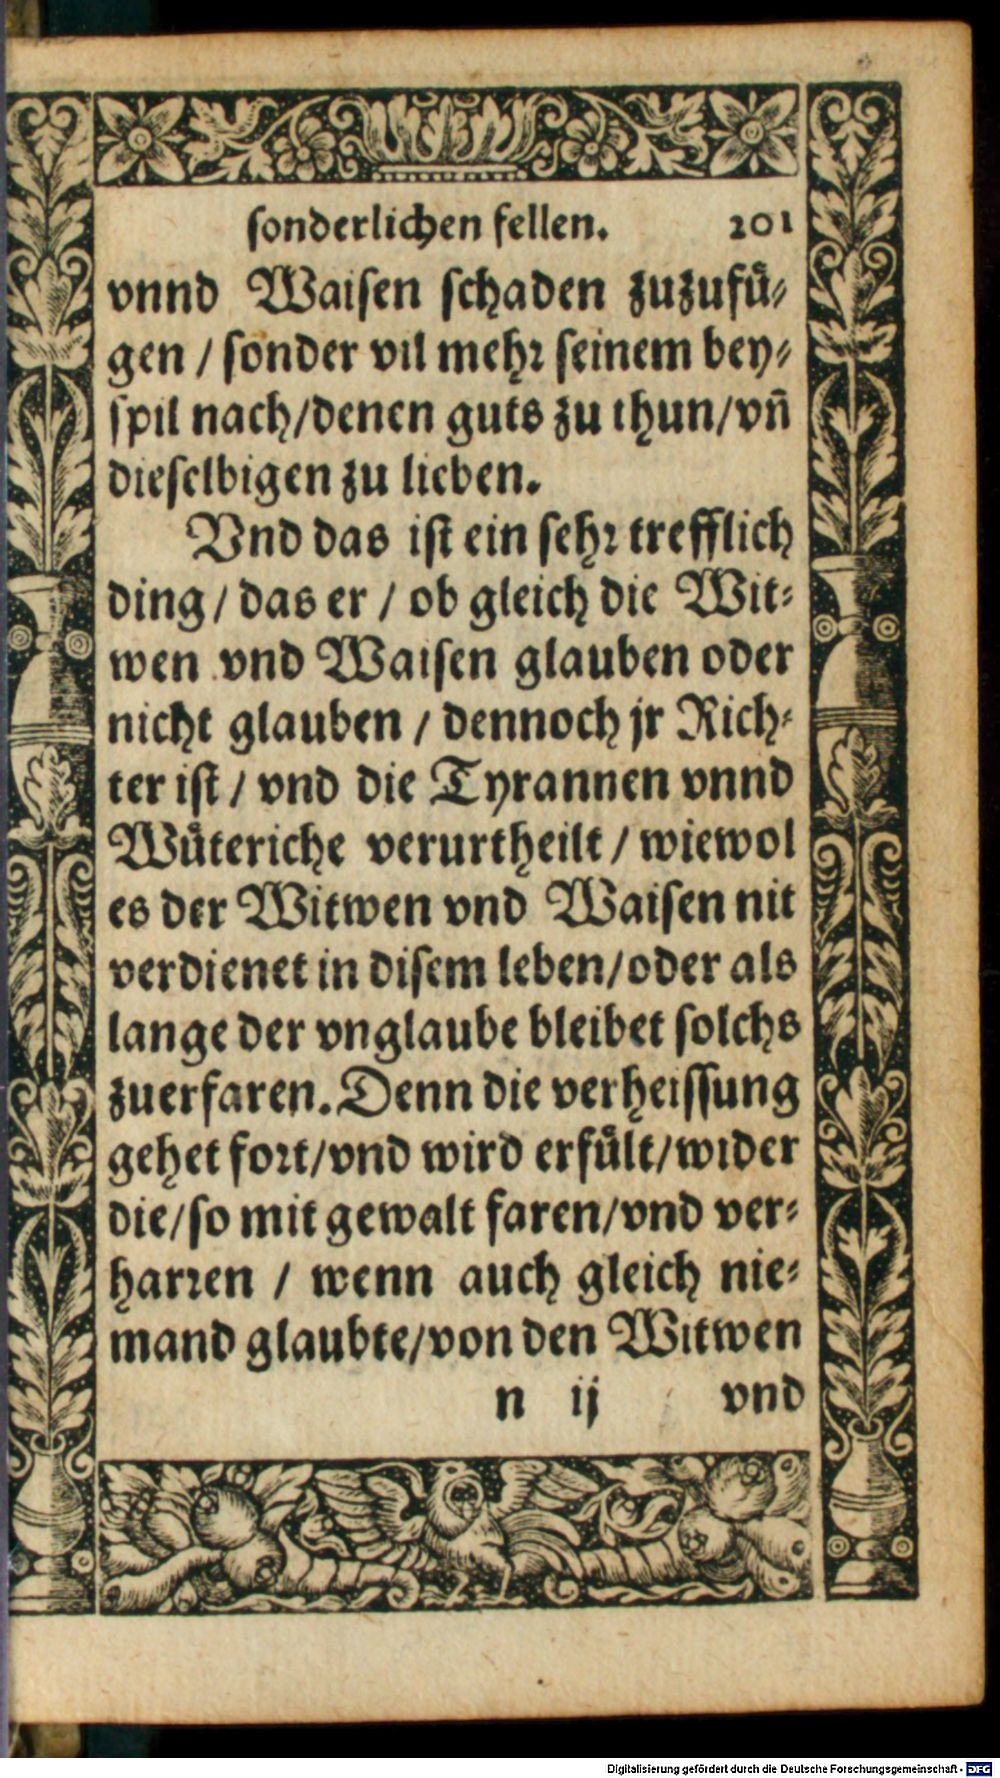 sonderlichen fellen. 201
vnnd Waisen schaden zuzufuͤ⸗
gen / sonder vil mehr seinem bey⸗
spil nach/denen guts zu thun/vn̄
dieselbigen zu lieben.
Vnd das ist ein sehr trefflich
ding / das er / ob gleich die Wit⸗
wen vnd Waisen glauben oder
nicht glauben / dennoch jr Rich⸗
ter ist / vnd die Tyrannen vnnd
Wuͤteriche verurtheilt / wiewol
es der Witwen vnd Waisen nit
verdienet in disem leben/oder als
lange der vnglaube bleibet solchs
zuerfaren. Denn die verheissung
gehet fort/vnd wird erfuͤlt/wider
die/so mit gewalt faren/vnd ver⸗
harren / wenn auch gleich nie⸗
mand glaubte/von den Witwen
n ij vnd
Digitalisierung gefördert durch die Deutsche Forschungsgemeinschaft - DFG